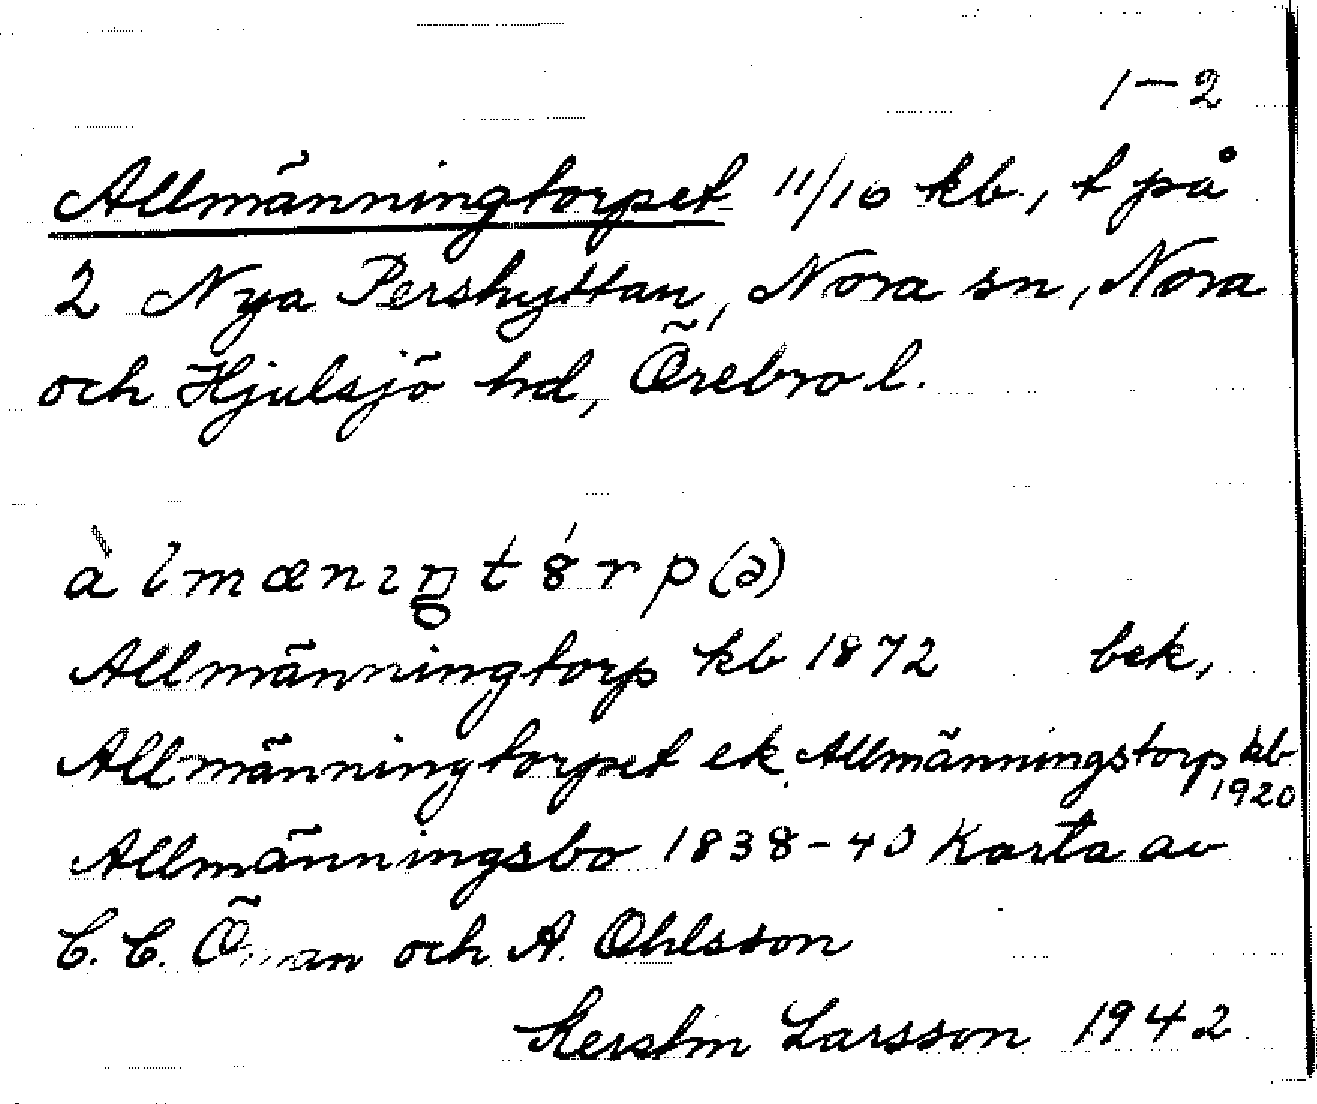 1-2
Allmänningtorpet 11/16 kb, t på
2 Nya Pershyttan, Nora sn, Nora
och Hjulsjö hd, Örebro l.
àlmænıŋtórp(ə)
Allmänningtorp kb 1872 bek,
Allmänningtorpet ek Allmänningstorp kb
1920
Allmänningsbo 1838-40 Karta av
C. C. och A. Ohlsson
Kerstin Larsson 1942